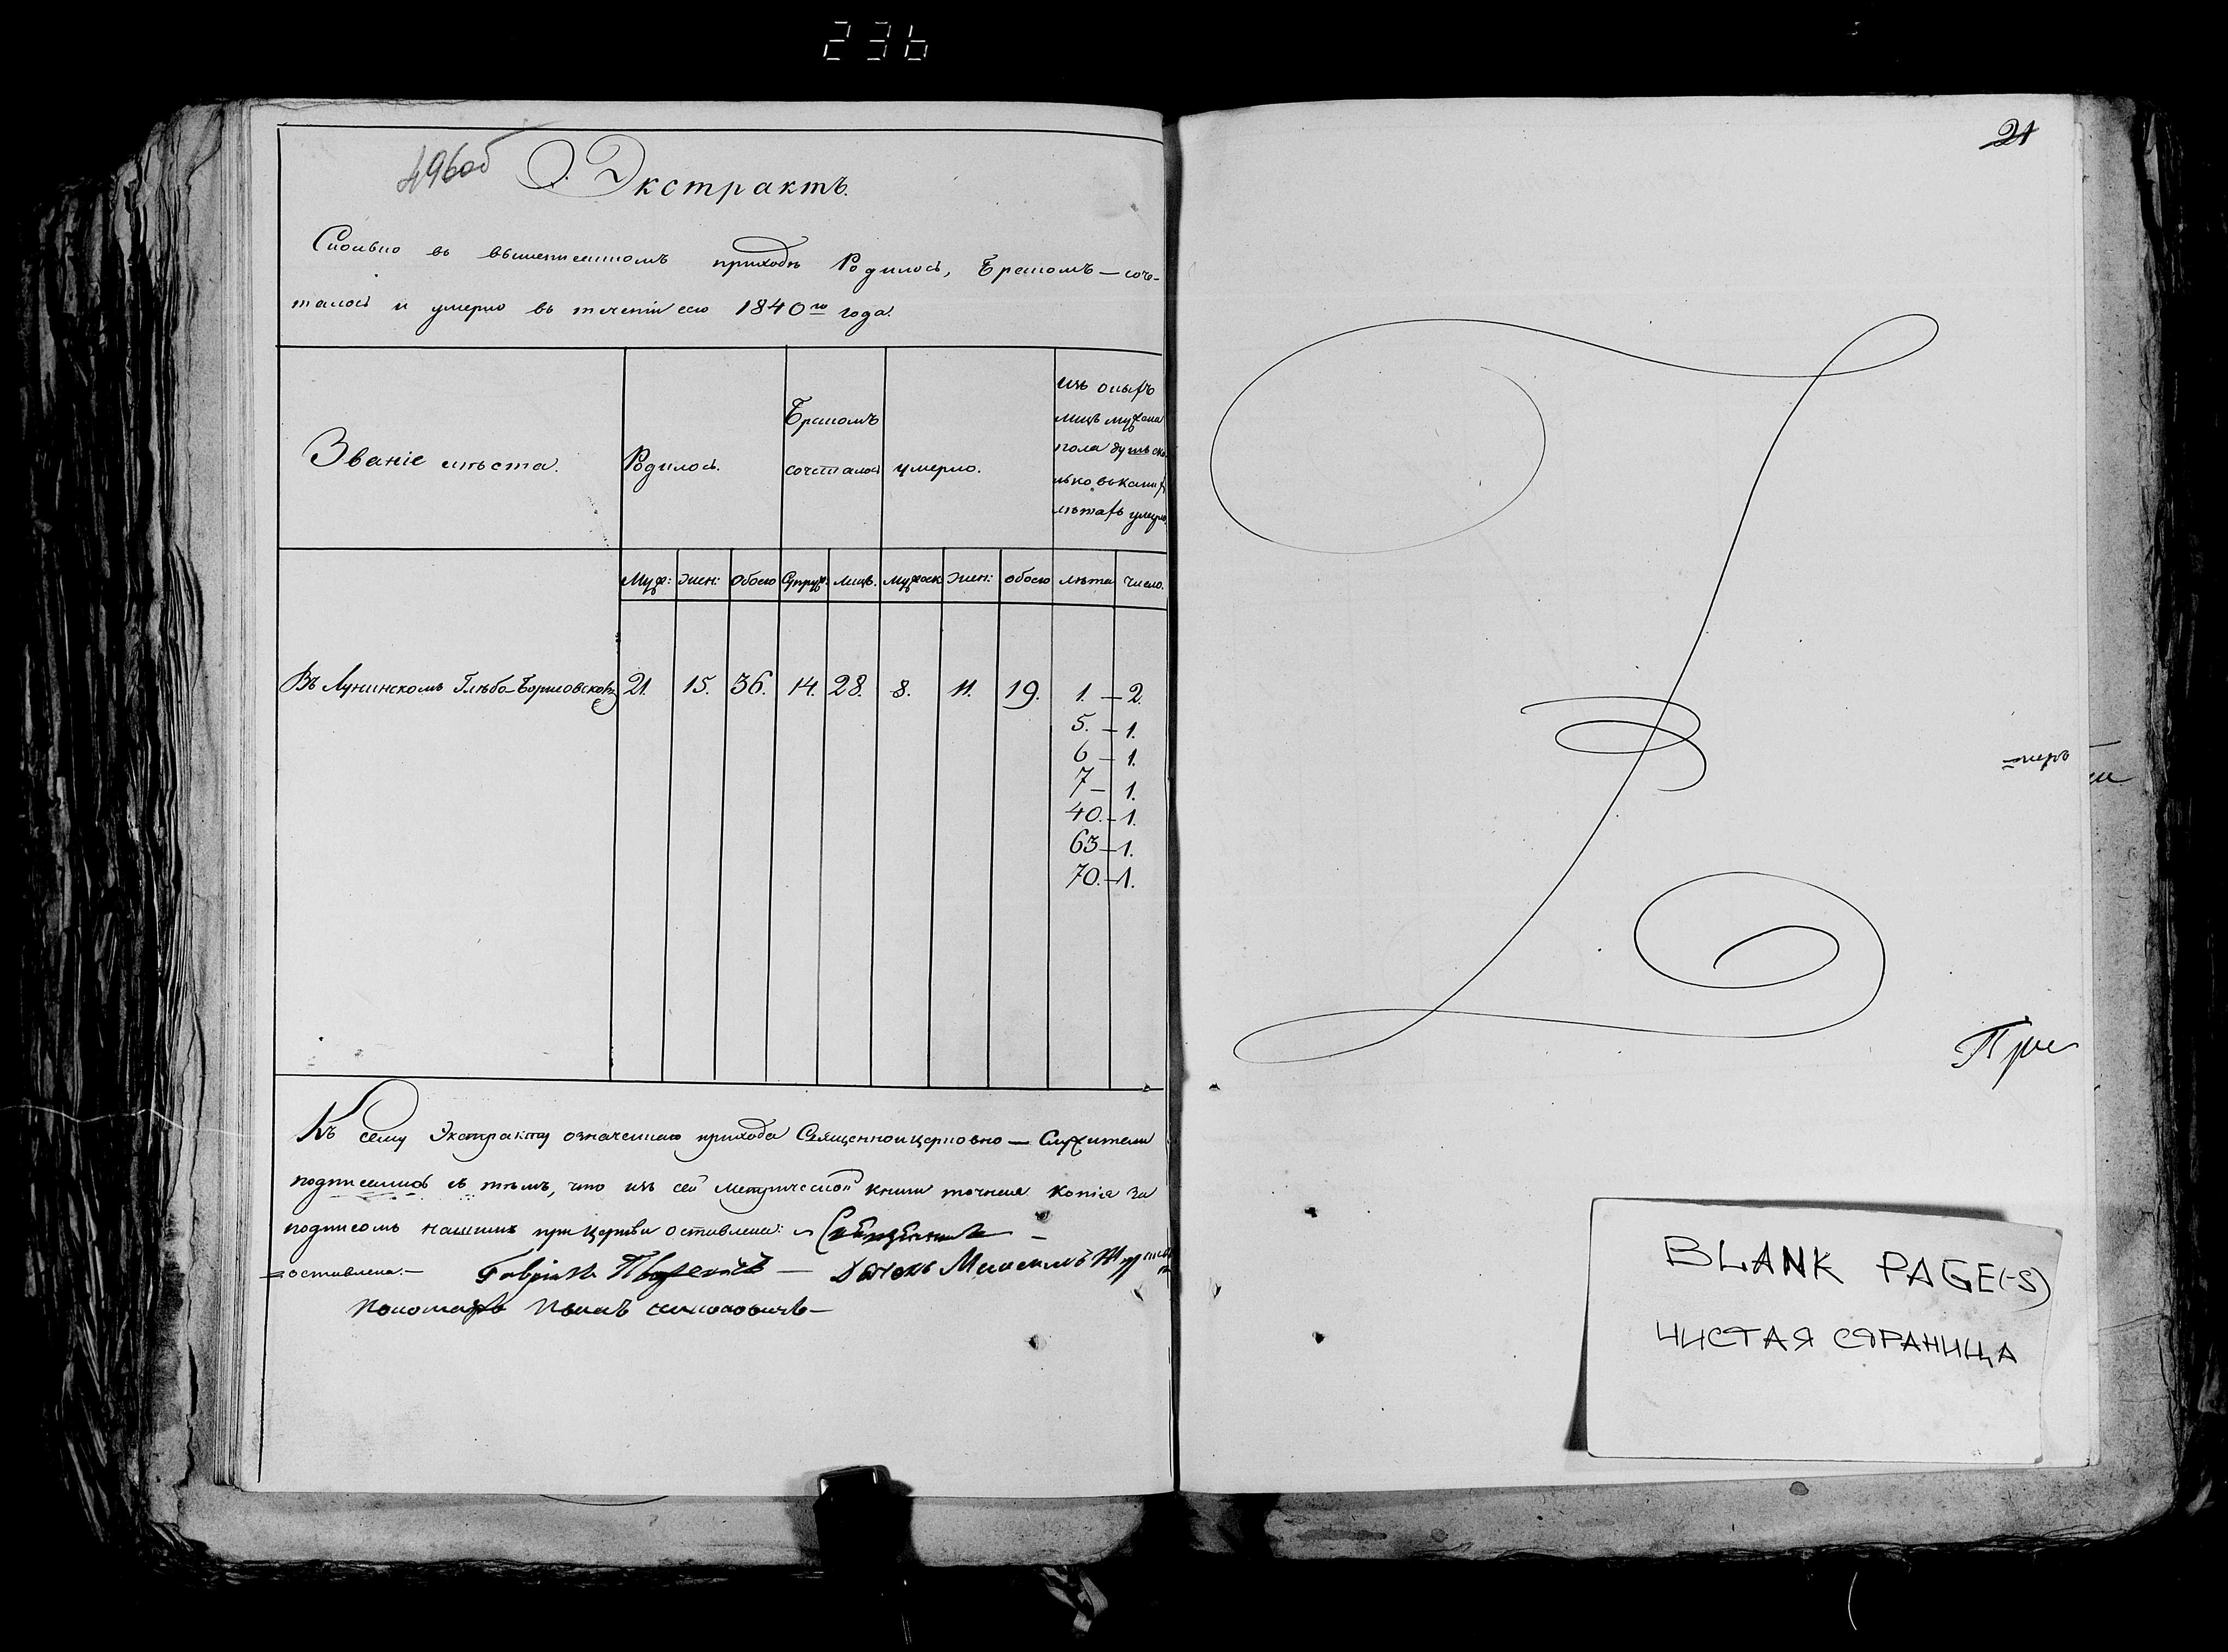 236
496об
Экстрактъ.
Сколько въ вышеписанномъ приходѣ Родилось, Бракомъ – соче-
талось и умерло въ теченіи сего 1840го года.
Званіе мѣста.
Родилось.
Бракомъ
сочеталось
умерло.
изъ оныхъ
лицъ мужеска
пола душъ ско-
лько въ какихъ
лѣтахъ умерло.
Муж: Жен: Обоего Супруж: Лицъ. Мужеск Жен: обоего лѣта Число.
Въ Лунинскомъ Глѣбо-Борисовской 21. 15. 36. 14. 28. 8. 11. 19. 1. – 2.
5. – 1.
6 – 1.
7 – 1.
40. – 1.
63 – 1.
70. – 1.
Къ сему Экстракту означеннаго прихода Священноицерковно – Служители
подписались въ томъ, что изъ сей Метрической книги точная копія за
подписомъ нашимъ при Церкви оставлена: Священникъ –
оставлена. – Гавріилъ – Дьячекъ
Пономарь
21
При
BLANK PAGE(-S)
ЧИСТАЯ СТРАНИЦА